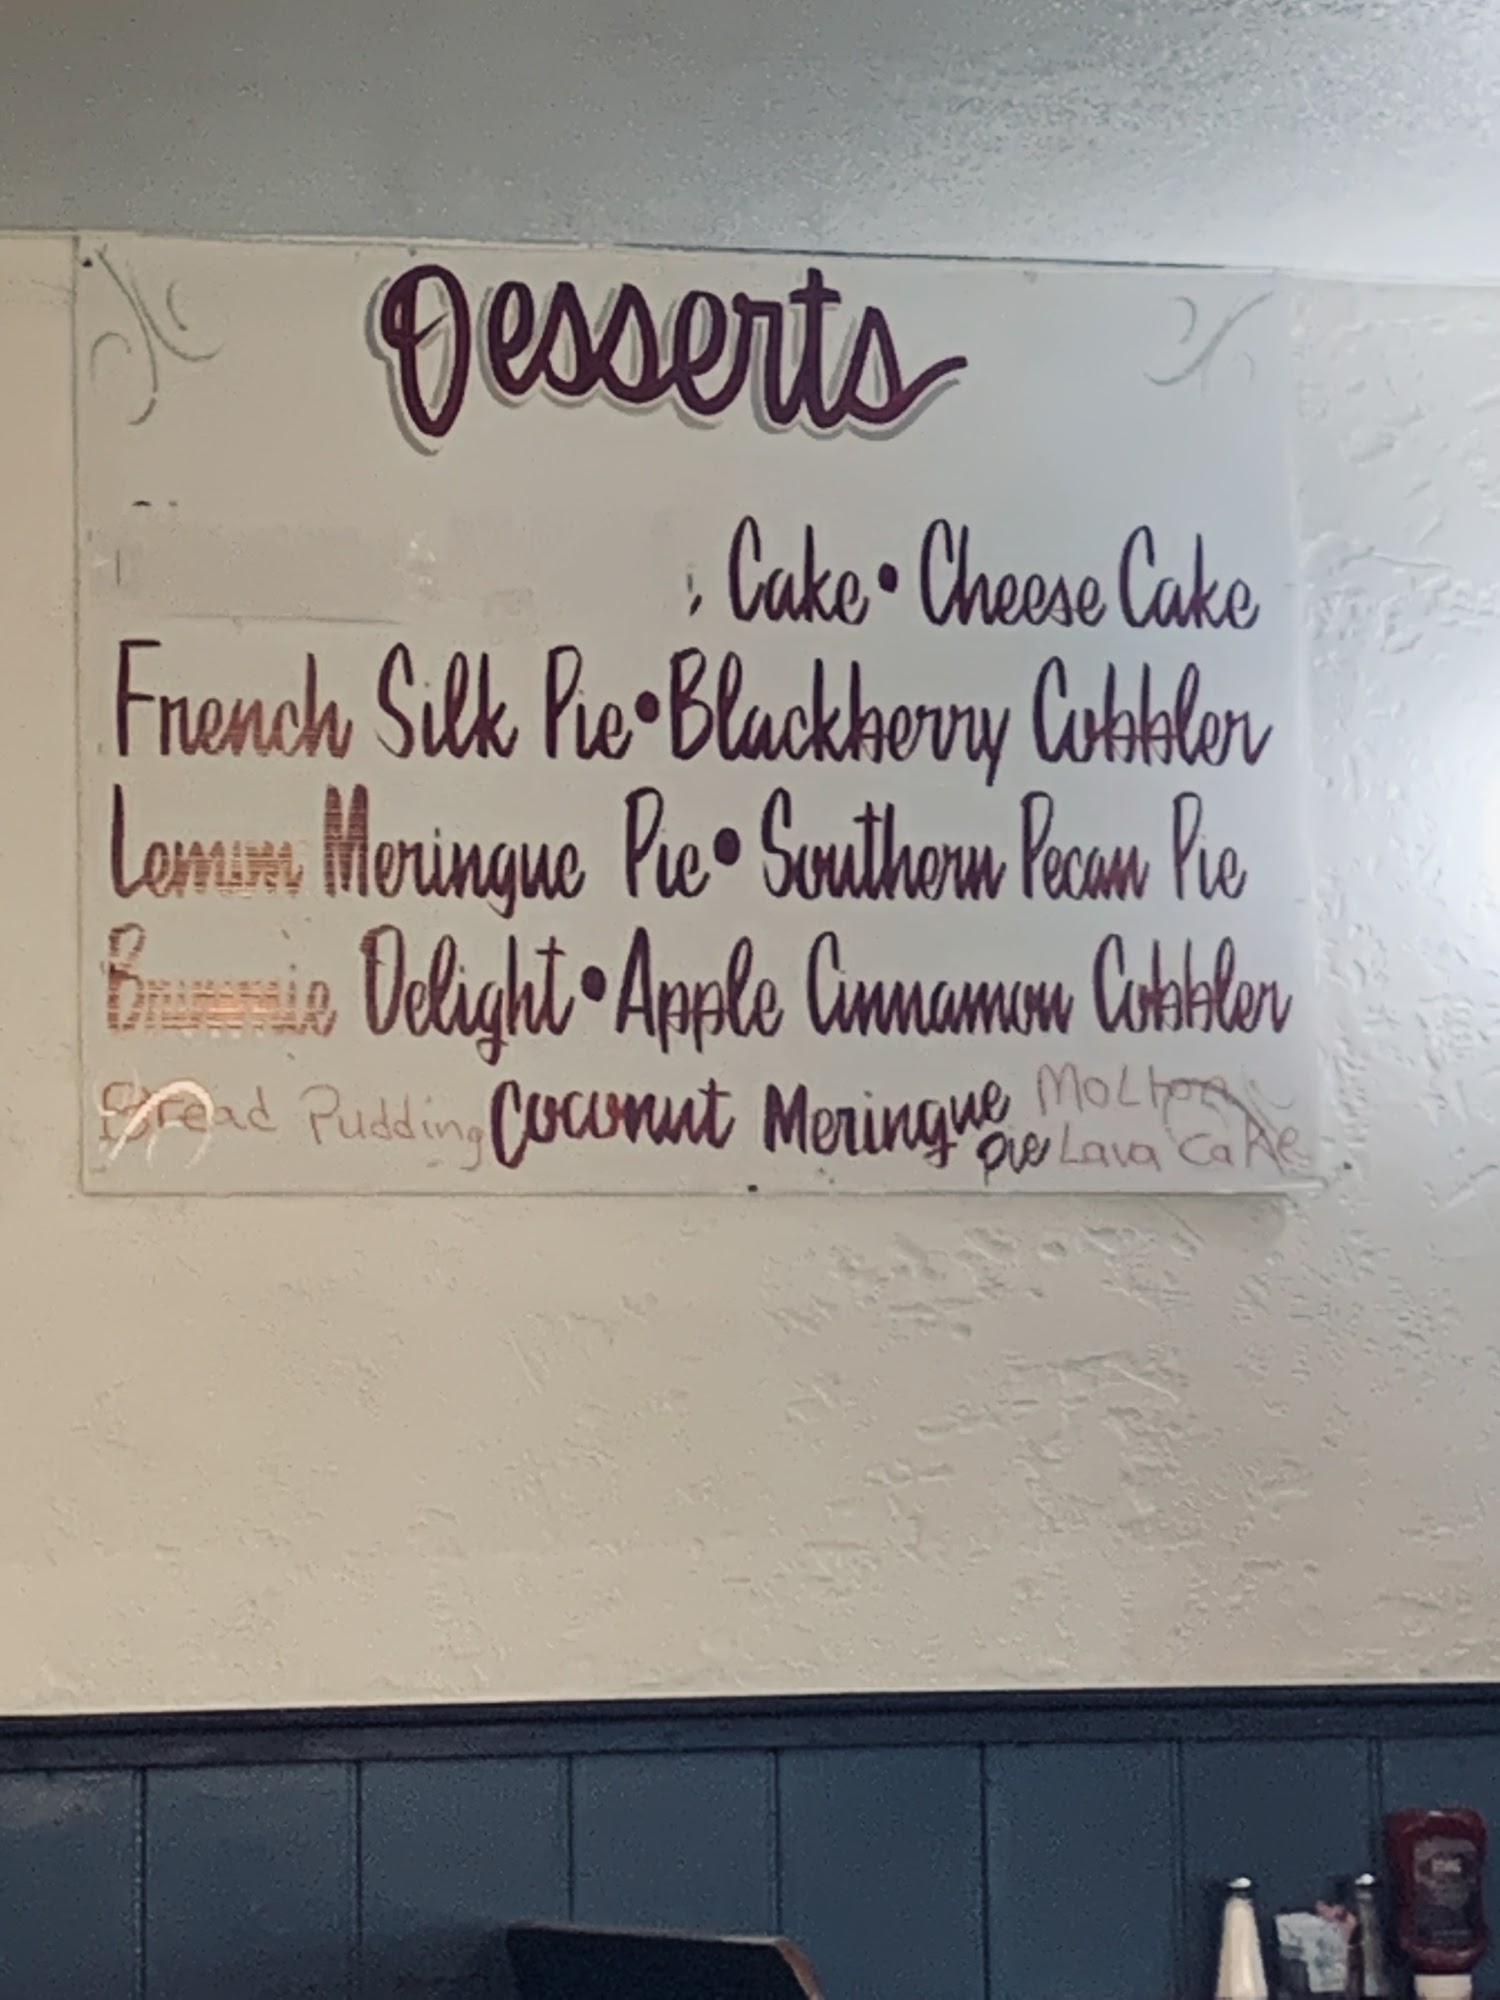 Desserts
Cake • Cheese Cake
French Silk Pie • Blackberry Cobbler
Lemon Meringue Pie • Southern Pecan Pie
Brownie Delight • Apple Cinnamon Cobbler
Bread Pudding Coconut Meringue Pie Molton Lava Cake